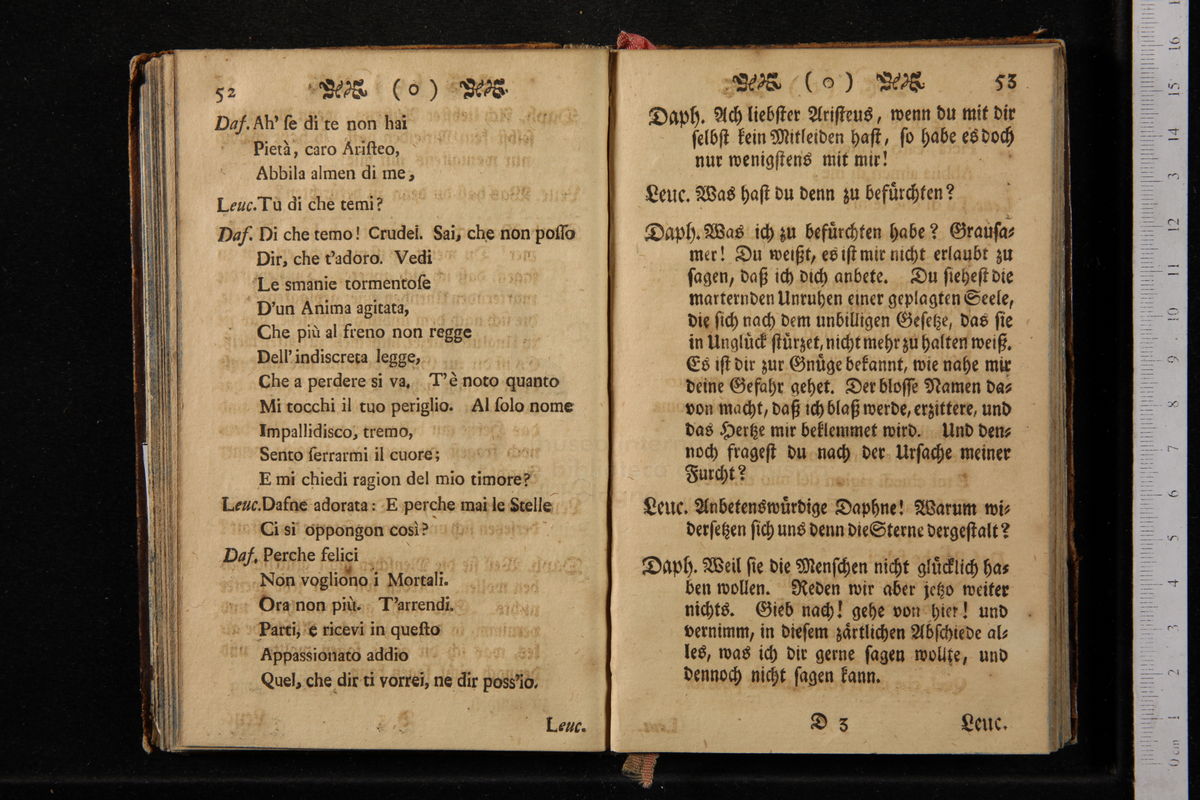 52 ( o )
Daf. Ah' ſe di te non hai
Pietà, caro Ariſteo,
Abbila almen di me,
Leuc. Tu di che temi?
Daf. Di che temo! Crudel. Sai, che non poſſo
Dir, che t'adoro. Vedi
Le smanie tormentoſe
D'un Anima agitata,
Che più al freno non regge
Dell' indiscreta legge,
Che a perdere si va. T'è noto quanto
Mi tocchi il tuo periglio. Al ſolo nome
Impallidisco, tremo,
Sento ſerrarmi il cuore;
E mi chiedi ragion del mio timore?
Leuc. Dafne adorata: E perche mai le Stelle
Ci si oppongon così?
Daf. Perche felici
Non vogliono i Mortali.
Ora non più. T'arrendi.
Parti, e ricevi in queſto
Appassionato addio
Quel, che dir ti vorrei, ne dir poss'io.
Leuc.
( o ) 53
Daph. Ach liebſter Ariſteus, wenn du mit dir
ſelbſt kein Mitleiden haſt, ſo habe es doch
nur wenigſtens mit mir!
Leuc. Was haſt du denn zu befürchten?
Daph. Was ich zu befürchten habe? Grauſa-
mer! Du weißt, es iſt mir nicht erlaubt zu
ſagen, daß ich dich anbete. Du ſieheſt die
marternden Unruhen einer geplagten Seele,
die ſich nach dem unbilligen Geſetze, das ſie
in Unglück ſtürzet, nicht mehr zu halten weiß.
Es iſt dir zur Gnüge bekannt, wie nahe mir
deine Gefahr gehet. Der bloſſe Namen da-
von macht, daß ich blaß werde, erzittere, und
das Hertze mir beklemmet wird. Und den-
noch frageſt du nach der Urſache meiner
Furcht?
Leuc. Anbetenswürdige Daphne! Warum wi-
derſetzen ſich uns denn die Sterne dergeſtalt?
Daph. Weil ſie die Menſchen nicht glücklich ha-
ben wollen. Reden wir aber jetzo weiter
nichts. Gieb nach! gehe von hier! und
vernimm, in dieſem zärtlichen Abſchiede al-
les, was ich dir gerne ſagen wollte, und
dennoch nicht ſagen kann.
D 3 Leuc.
0 cm 1 2 3 4 5 6 7 8 9 10 11 12 13 14 15 16